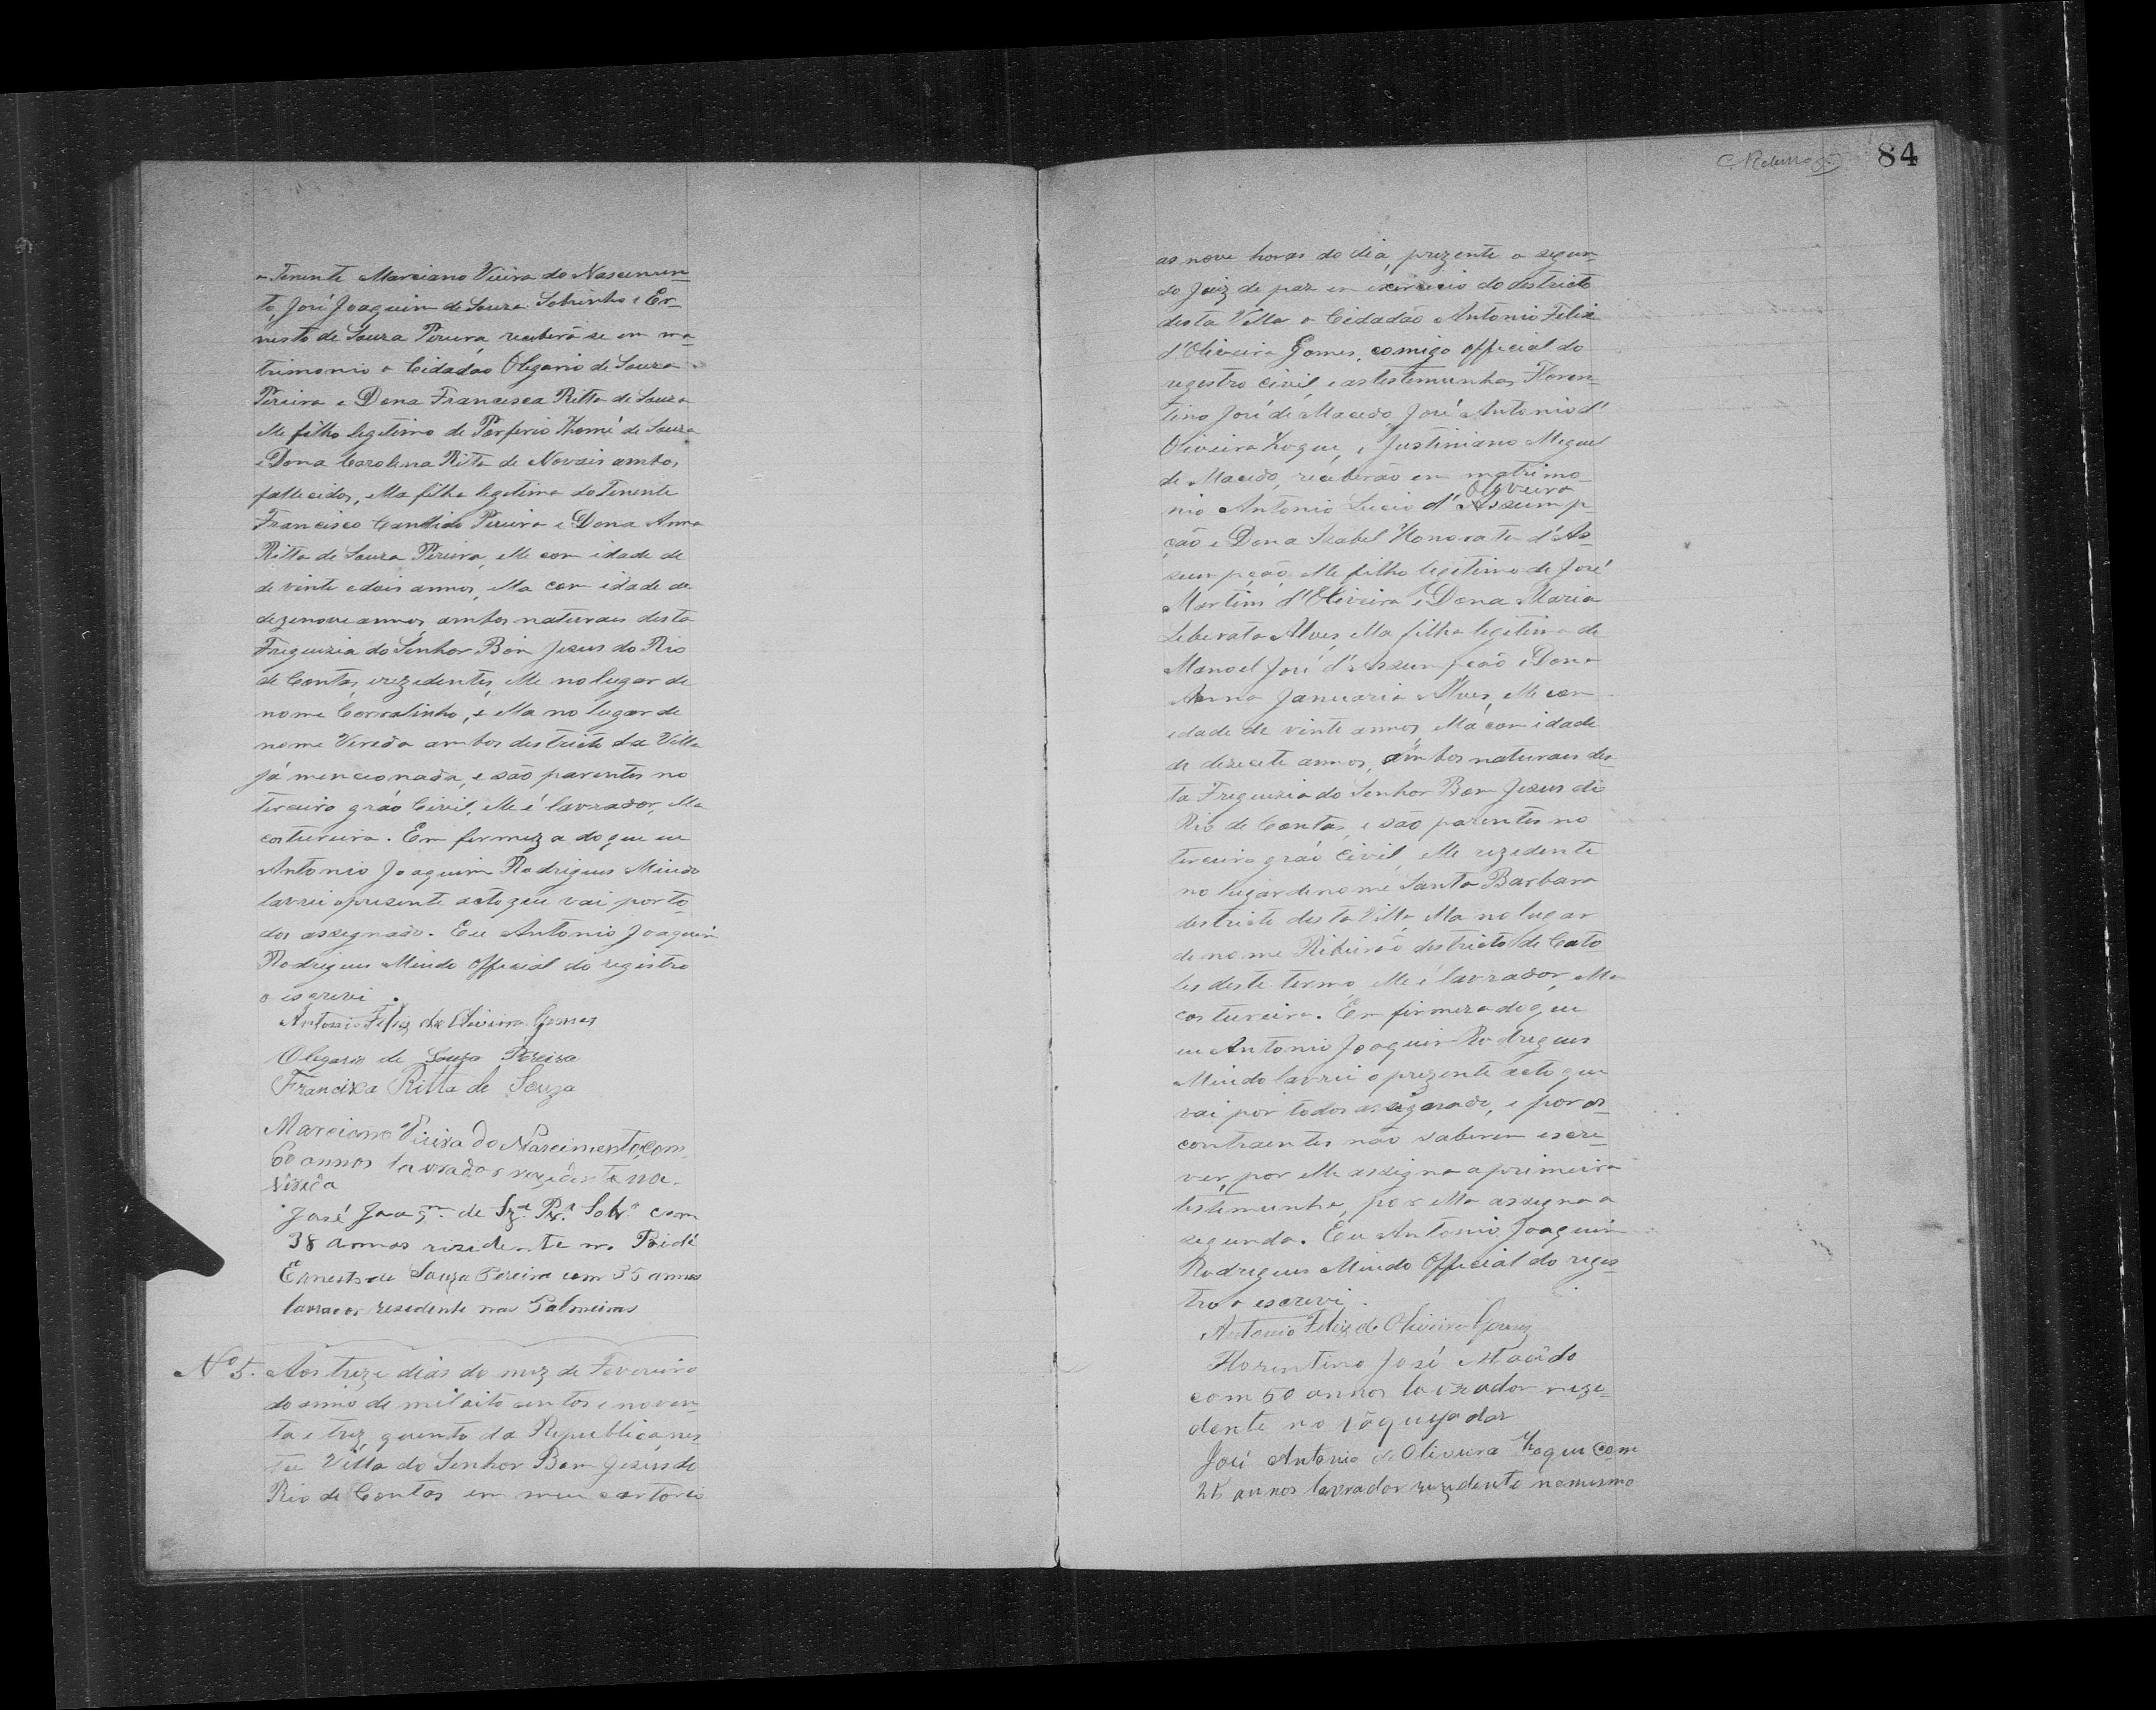 o Tenente Marciano Vieira do Nascimen-
to, José Joaquim de Souza Sobrinho e Er-
nesto de Souza Pereira, receberão se em ma-
trimonio o Cidadão Olegario de Souza
Pereira e Dona Francisca Ritta de Souza
elle filho legitimo de Porferio Thomé de Souza
e Dona Carolina Rita de Novais ambos
fallecidos, ella filha legitima do Tenente
Francisco Candido Pereira e Dona Anna
Ritta de Souza Pereira, elle com idade de
de vinte e dois annos, ella com idade de
dezenove annos, ambos naturaes desta
Freguezia do Senhor Bom Jesus do Rio
de Contas, e rezedentes, elle no lugar de
nome Corralinho, e ella no lugar de
nome Vereda ambos destricto da Villa
já mencionada, e são parentes no
terceiro gráo Civil, elle é lavrador, ella
costureira. Em fermeza do que eu
Antonio Joaquim Rodrigues Miudo
lavrei o presente acto que vai por to-
dos assegnado. Eu Antonio Joaquim
Rodrigues Miudo official do registro
o escrevi.
Antonio Felix de Oliveira Gomes
Olegario de Souza Pereira
Francisca Ritta de Souza
Marciano Vieira do Nascimento, com
60 annos lavrador rezidente na
Vereda
José Joaqm. de Sza. Pra. Sobro. com
38 annos rizidente no
Ernesto de Souza Pereira com 35 annos
lavrador resedente nas Palmeiras
No 5. Aos treze dias do mez de Fevereiro
do anno de mil oito centos e noven-
ta e trez, quinto da Republica nes-
ta Villa do Senhor Bom Jesus do
Rio de Contas em meu cartorio
84
as nove horas do dia, prezente o segun-
do Juiz de paz em exercicio do destricto
desta Villa o Cidadão Antonio Felix
d'Oliveira Gomes, comigo official do
registro civil, e as testemunhas Floren-
tino José de Macedo, José Antonio d'
Oliveira Roque, e Justiniano Meguel
de Macedo, receberão em matrimo-
Oliveira
nio Antonio Lucio d' Assump-
ção e Dona Izabel Honorata d'As-
sumpção, elle filho legitimo de José
Martins d'Oliveira e Dona Maria
Leberata Alves, ella filha legitima de
Manoel José d'Assumpção e Dona
Anna Januaria Alves, elle com
edade de vinte annos, ella com idade
de desecete annos, ambos naturaes des-
ta Freguezia do Senhor Bom Jesus do
Rio de Contas, e são parentes no
terceiro gráo Civil, elle rezedente
no lugar de nome Santa Barbara
destricto desta Villa, ella no lugar
de nome Ribeirão destricto de Cato-
les deste termo, elle é lavrador, ella
costureira. Em firmeza do que
eu Antonio Joaquim Rodrigues
Miudo lavrei o prezente acto que
vai por todos assignado, e por os
contraentes não saberem escre-
ver, por elle assigna a primeira
testemunha, por ella assigna a
segunda. Eu Antonio Joaquim
Rodrigues Miudo Official do regis-
tro o escrevi.
Antonio Felix de Oliveira Gomes
Florentino José Macêdo
com 50 annos lavrador reze-
dente no
José Antonio de Oliveira Roque com
25 annos lavrador rezedente no mesmo